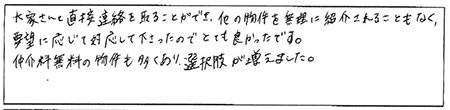 大家さんと直接連絡を取ることができ、他の物件を無理に紹介されることもなく、
要望に応じて対応して下さったのでとても良かったです。
仲介料無料の物件も多くあり、選択肢が増えました。